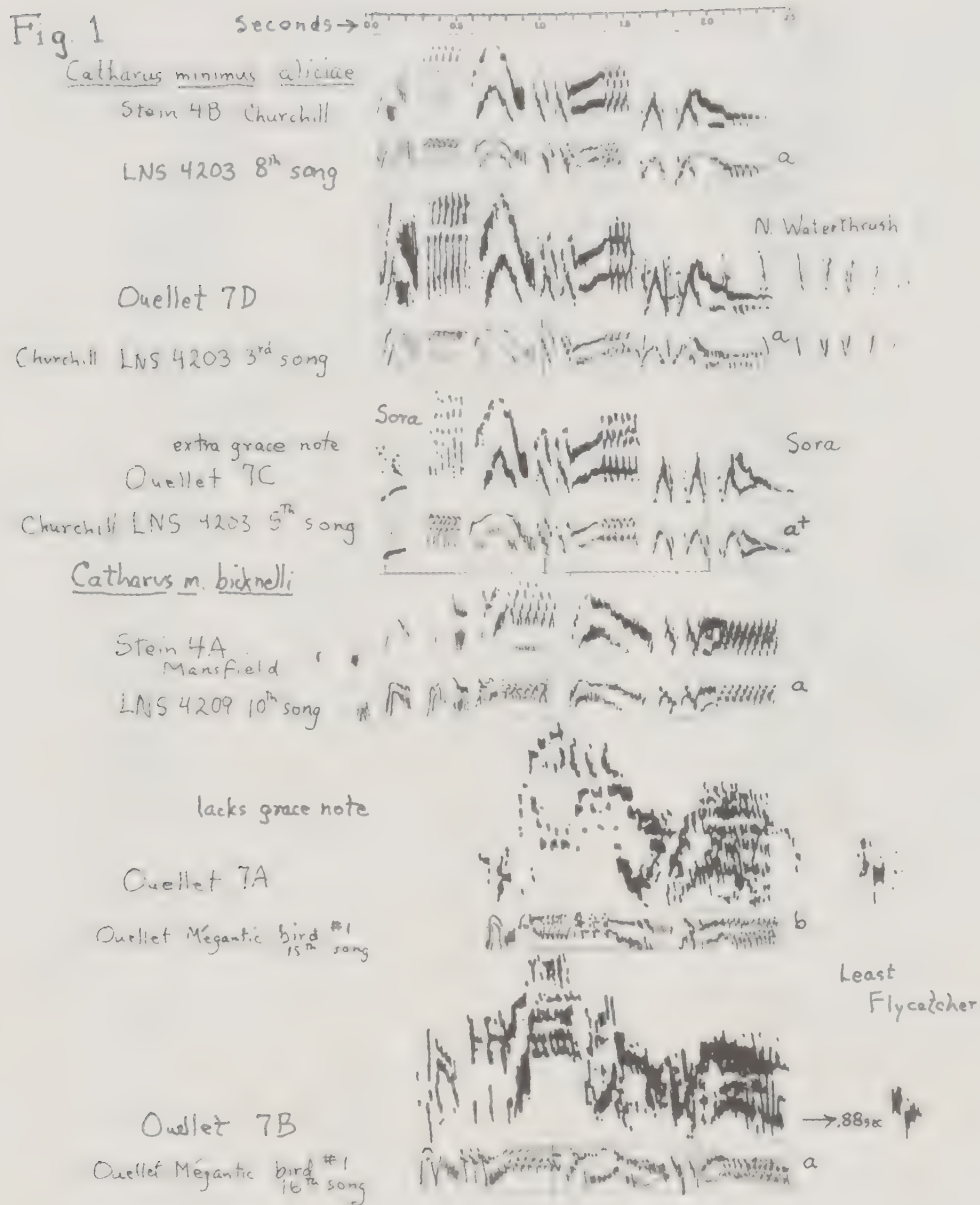 Fig. 1
Seconds → 0.0 0.5 1.0 1.5 2.0 2.5
Catharus minimus aliciae
Stein 4B Churchill
LNS 4203 8th song a
N. Waterthrush
Ouellet 7D
Churchill LNS 4203 3rd song a
Sora
extra grace note Sora
Ouellet 7C
Churchill LNS 4203 5th song a+
Catharus m. bicknelli
Stein 4A
Mansfield
LNS 4209 10th song a
lacks grace note
Ouellet 7A
Ouellet Mégantic bird #1 b
15th song
Least
Flycatcher
Ouellet 7B → .88sec
Ouellet Mégantic bird #1 a
16th song